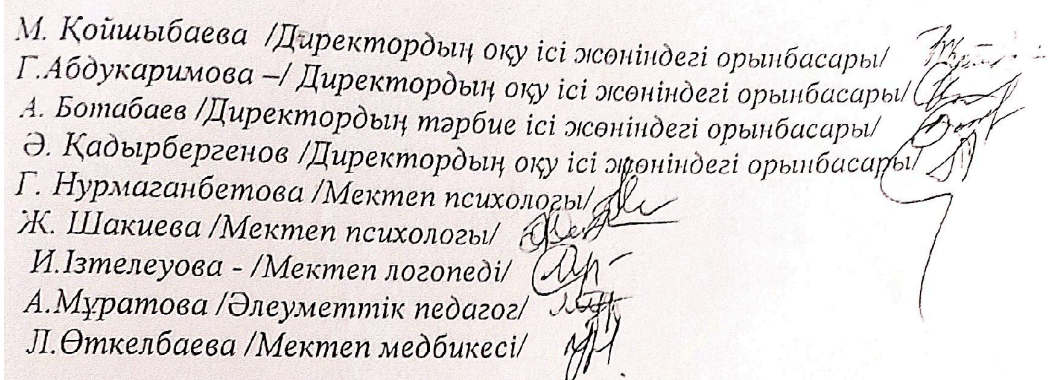 М. Қойшыбаева /Директордың оқу ісі жөніндегі орынбасары/
Г.Абдукаримова –/ Директордың оқу ісі жөніндегі орынбасары/
А. Ботабаев /Директордың тәрбие ісі жөніндегі орынбасары/
Ә. Қадырбергенов /Директордың оқу ісі жөніндегі орынбасары/
Г. Нурмаганбетова /Мектеп психологы/
Ж. Шакиева /Мектеп психологы/
И.Ізтелеуова - /Мектеп логопеді/
А.Мұратова /Әлеуметтік педагог/
Л.Өткелбаева /Мектеп медбикесі/